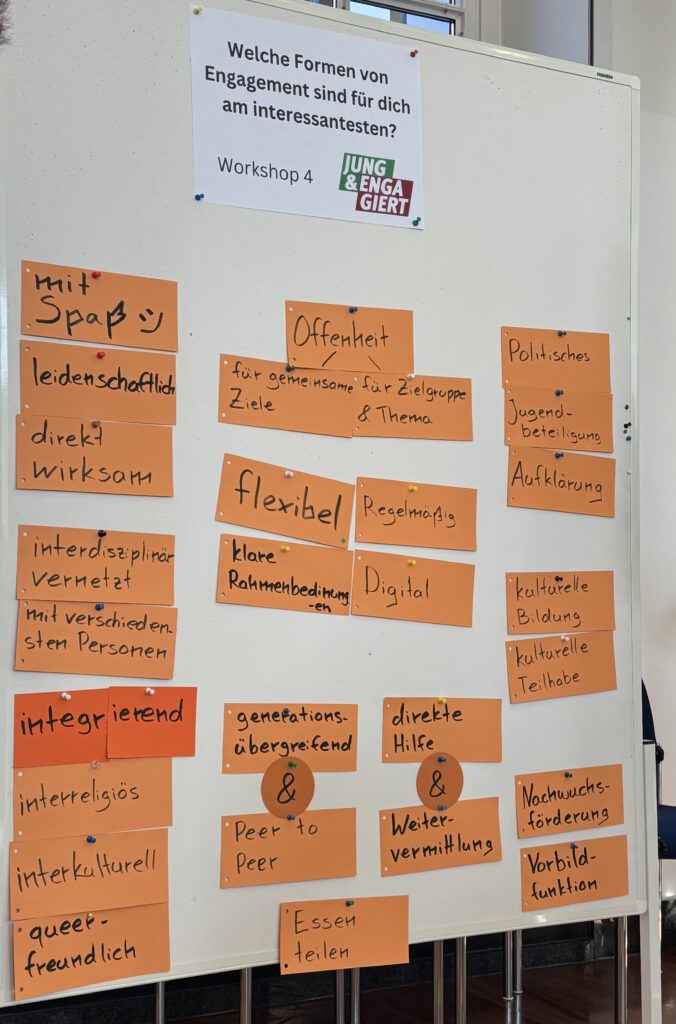 Welche Formen von
Engagement sind für dich
am interessantesten?
Workshop 4
JUNG
& ENGA
GIERT
mit
Spaß ツ
leidenschaftlich
direkt
wirksam
interdisziplinär
vernetzt
mit verschieden-
sten Personen
integrierend
interreligiös
interkulturell
queer-
freundlich
Offenheit
für gemeinsame
Ziele
für Zielgruppe
& Thema
flexibel
Regelmäßig
klare
Rahmenbedinung
-en
Digital
generations-
übergreifend
&
Peer to
Peer
direkte
Hilfe
&
Weiter-
vermittlung
Essen
teilen
Politisches
Jugend-
beteiligung
Aufklärung
kulturelle
Bildung
kulturelle
Teilhabe
Nachwuchs-
förderung
Vorbild-
funktion